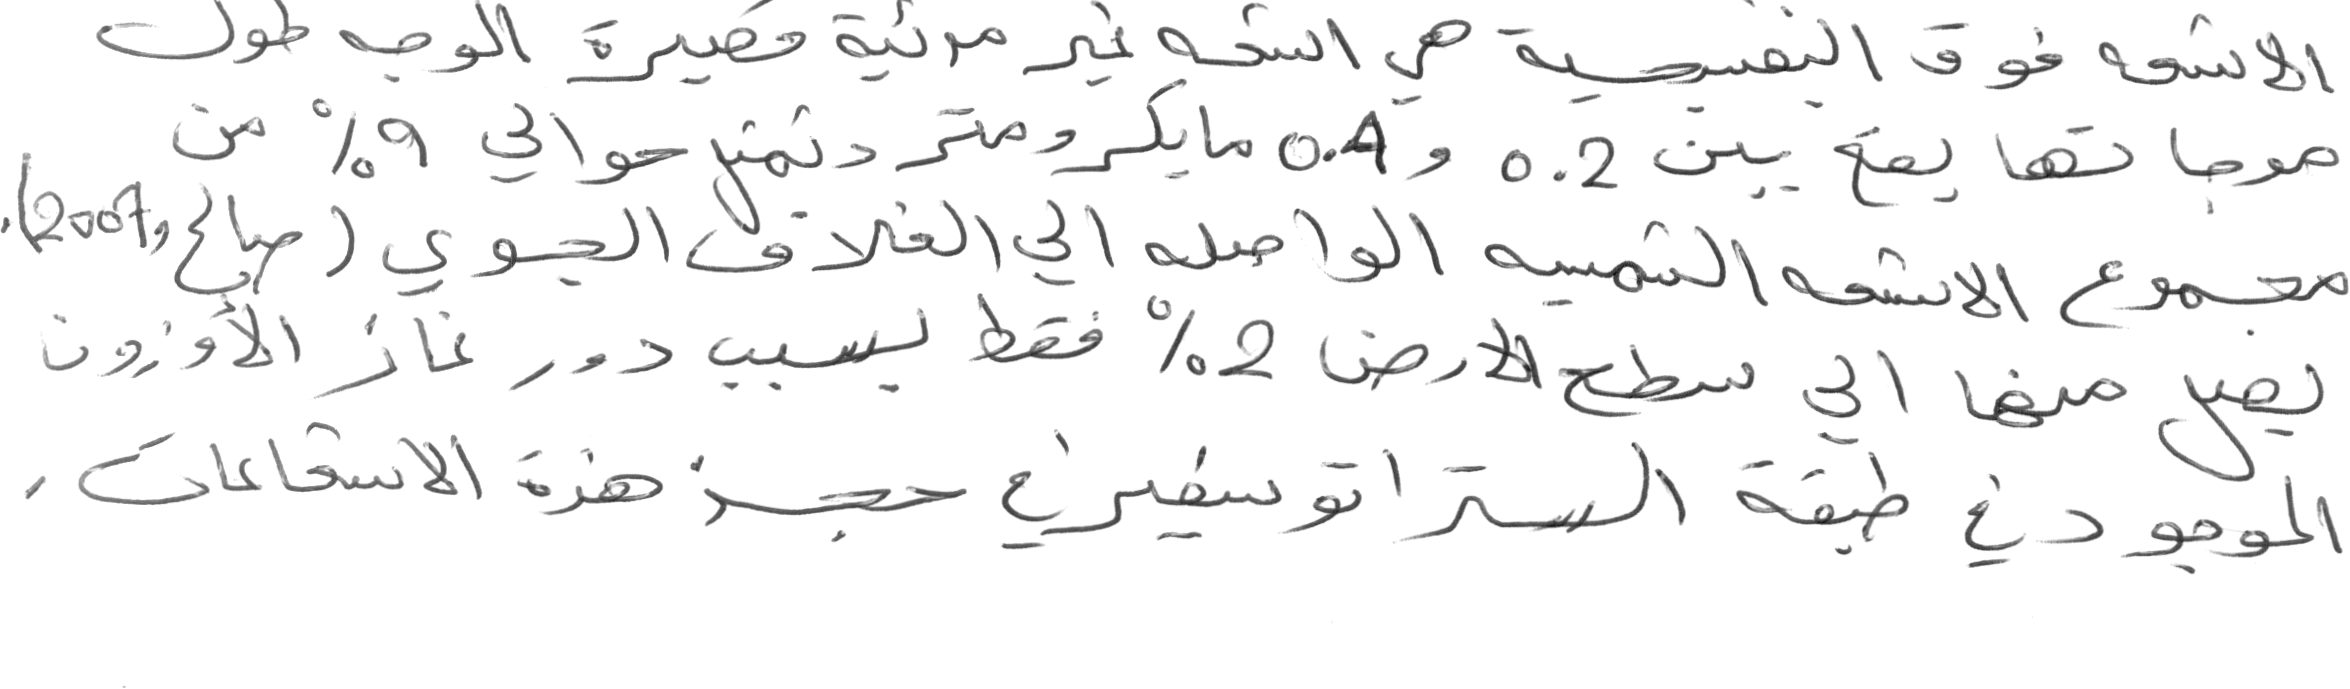 الاشعه فوق البنفسجية هي اشعه غير مرئية قصيرة الوجه طول
موجاتها يقع بين 0.2 و 0.4 مايكرومتر وتمثل حوالي 9% من
مجموع الاشعه الشمسيه الواصله الى الغلاف الجوي (صالح, 2007).
يصل منها الى سطح الارض 2% فقط بسبب دور غاز الأوزون
الموجود في طبقة الستراتوسفير في حجز هذة الاشعاعات.